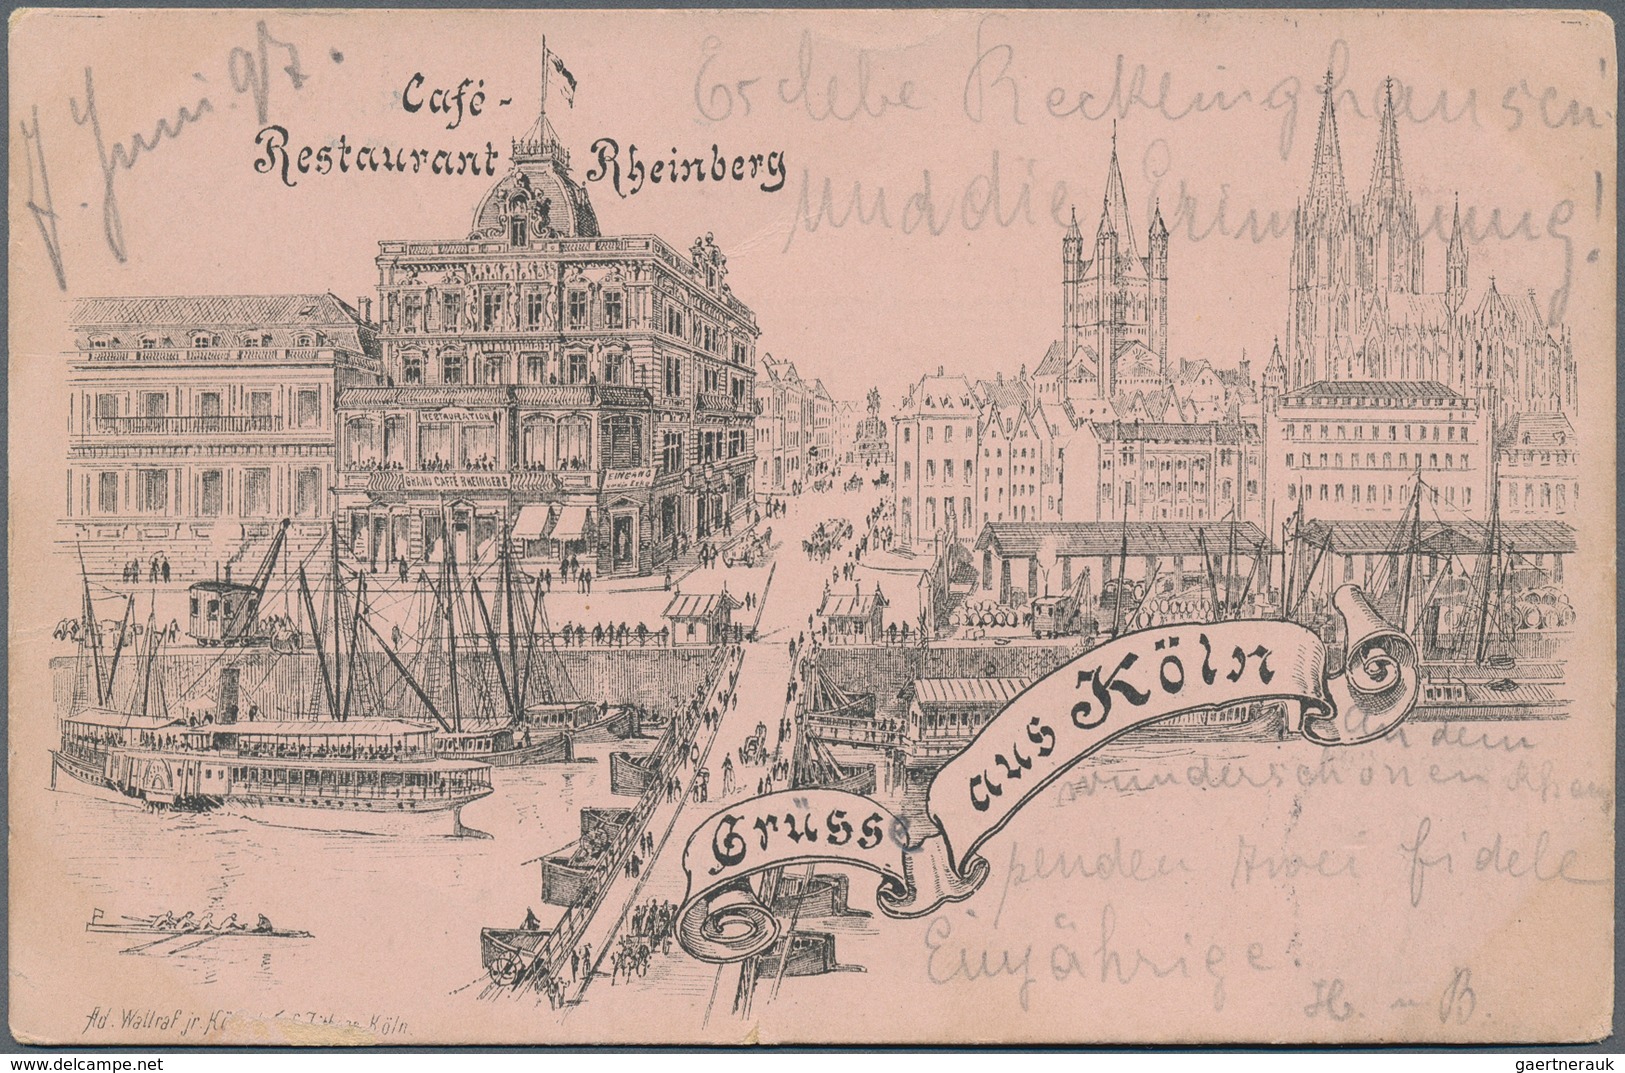 7. Juni 97.
Café-
Restaurant Rheinberg
Es lebe Recklinghausen
und die Erinnerung!
RESTAURATION
GRAND CAFFÉ RHEINBERG
EINGANG
Grüsse aus Köln
An dem
wunderschönen Rhein
penden zwei fidele
Einjährige.
H. u B.
Ad. Wallraf jr. Köln.
gaertnerauk